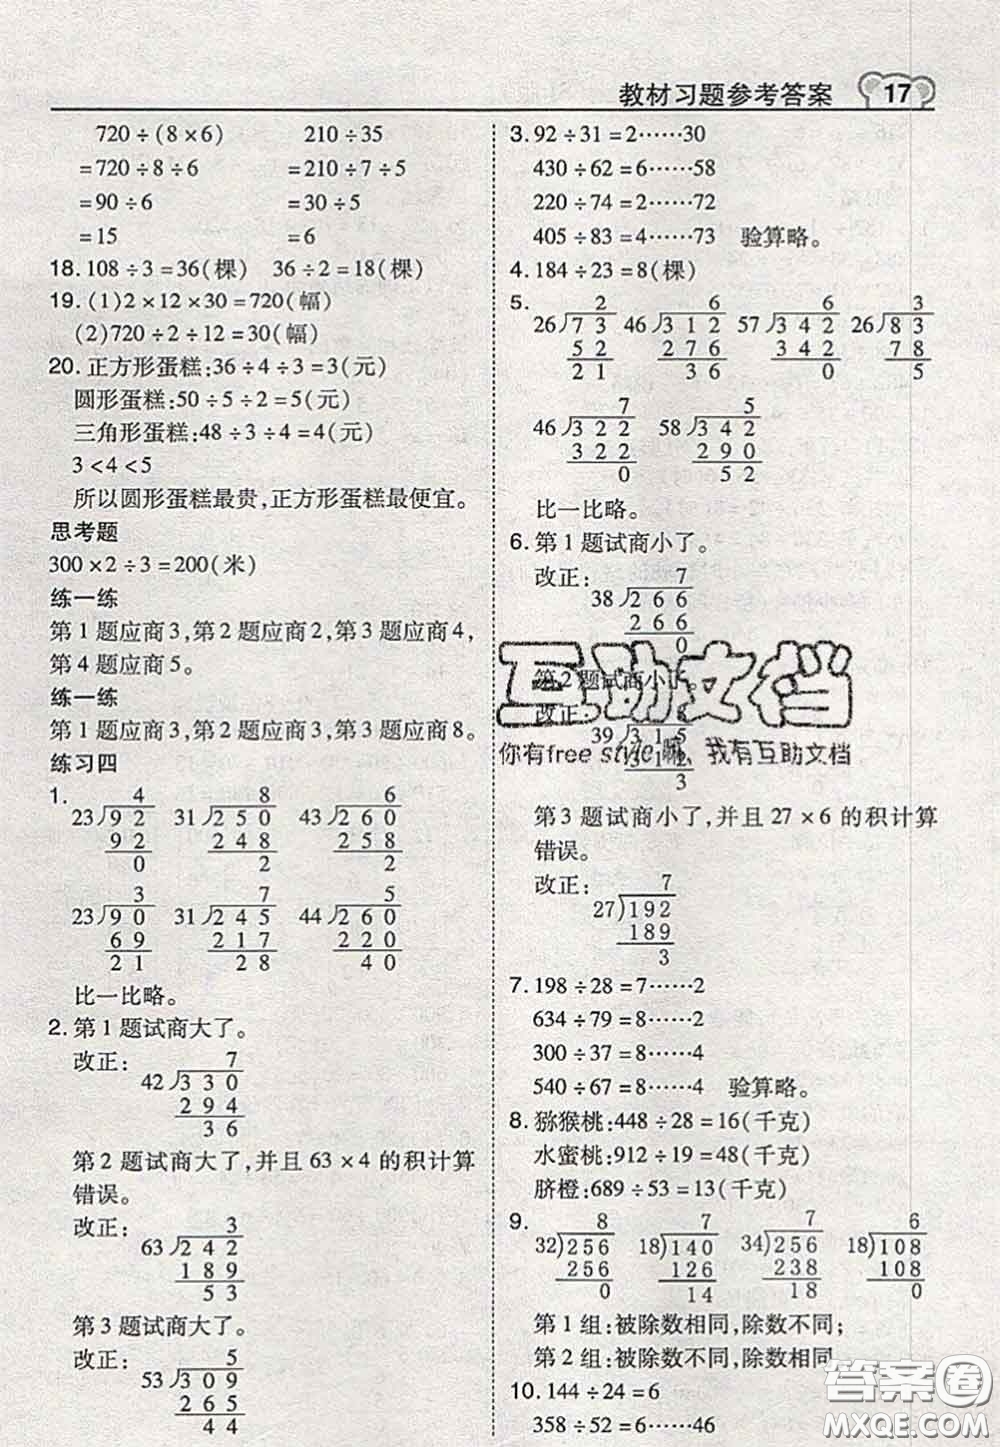 教材习题参考答案 17
720÷(8×6) 210÷35
=720÷8÷6 =210÷7÷5
=90÷6 =30÷5
=15 =6
18. 108÷3=36(棵) 36÷2=18(棵)
19. (1)2×12×30=720(幅)
(2)720÷2÷12=30(幅)
20. 正方形蛋糕:36÷4÷3=3(元)
圆形蛋糕:50÷5÷2=5(元)
三角形蛋糕:48÷3÷4=4(元)
3<4<5
所以圆形蛋糕最贵,正方形蛋糕最便宜。
思考题
300×2÷3=200(米)
练一练
第1题应商3,第2题应商2,第3题应商4,
第4题应商5。
练一练
第1题应商3,第2题应商5,第3题应商8。
练习四
1.
4 8 6
23)92 31)250 43)260
92 248 258
0 2 2
3 7 5
23)90 31)245 44)260
69 217 220
21 28 40
比一比略。
2. 第1题试商大了。
改正: 7
42)330
294
36
第2题试商大了,并且63×4的积计算
错误。
改正: 3
63)242
189
53
第3题试商大了。
改正: 5
53)309
265
44
3. 92÷31=2……30
430÷62=6……58
220÷74=2……72
405÷83=4……73 验算略。
4. 184÷23=8(棵)
5. 2 6 6 3
26)73 46)312 57)342 26)83
52 276 342 78
21 36 0 5
7 5
46)322 58)342
322 290
0 52
比一比略。
6. 第1题试商小了。
改正: 7
38)266
266
0
第2题试商小了。
改正: 8
39)315
312
3
第3题试商小了,并且27×6的积计算
错误。
改正: 7
27)192
189
3
7. 198÷28=7……2
634÷79=8……2
300÷37=8……4
540÷67=8……4 验算略。
8. 猕猴桃:448÷28=16(千克)
水蜜桃:912÷19=48(千克)
脐橙:689÷53=13(千克)
9. 8 7 7 6
32)256 18)140 34)256 18)108
256 126 238 108
0 14 18 0
第1组:被除数相同,除数不同;
第2组:被除数不同,除数相同
10. 144÷24=6
358÷52=6……46
互助文档
你有free style嘛、我有互助文档
答案圈
MXQE.COM